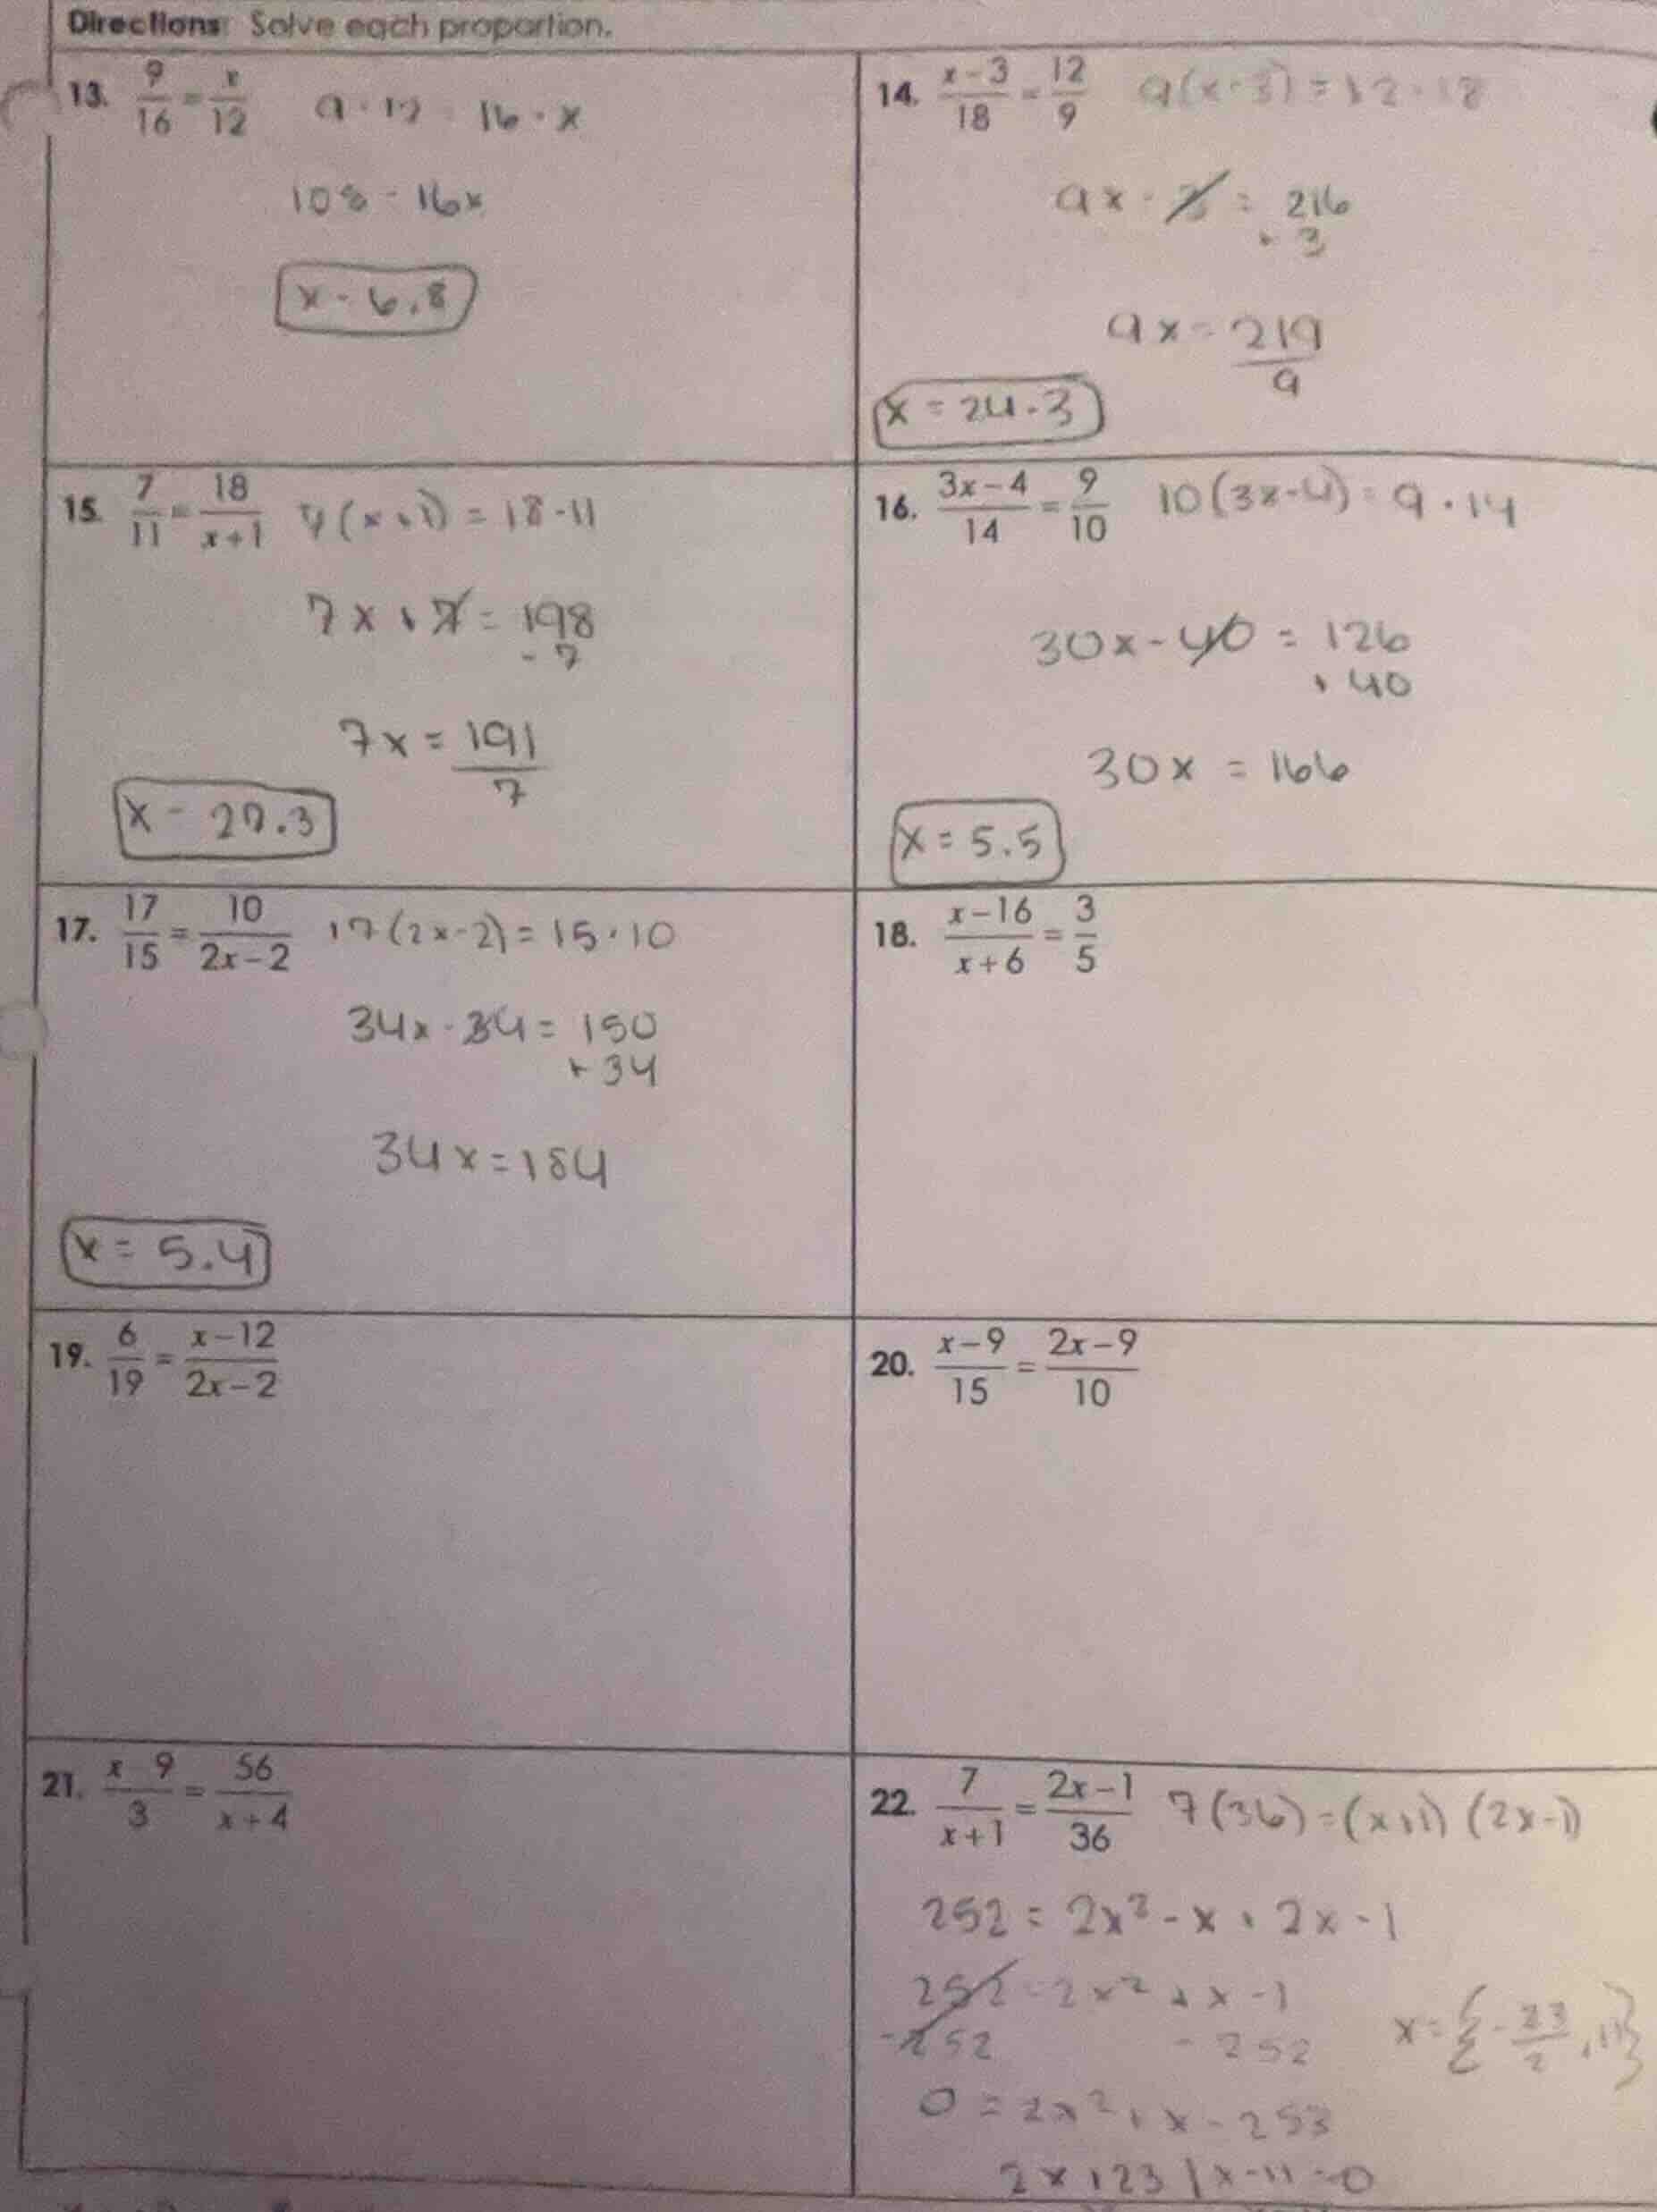 Directions: Solve each proportion.
13. 9/16 = x/12 9 · 12 = 16 · x
108 = 16x
x = 6.8
14. x-3/18 = 12/9 9(x-3) = 12 · 18
9x - 3 = 216
+ 3
9x = 219/9
x = 24.3
15. 7/11 = 18/x+1 7(x+1) = 18·11
7x + 7 = 198
- 7
7x = 191/7
x = 27.3
16. 3x-4/14 = 9/10 10(3x-4) = 9 · 14
30x - 40 = 126
+ 40
30x = 166
x = 5.5
17. 17/15 = 10/2x-2 17(2x-2) = 15·10
34x - 34 = 150
+ 34
34x = 184
x = 5.4
18. x-16/x+6 = 3/5
19. 6/19 = x-12/2x-2
20. x-9/15 = 2x-9/10
21. x 9/3 = 56/x+4
22. 7/x+1 = 2x-1/36 7(36) = (x+1) (2x-1)
252 = 2x² - x + 2x - 1
252 = 2x² + x - 1
-252 - 252
x = {-23/2, 11}
0 = 2x² + x - 253
2x+23 | x-11 = 0